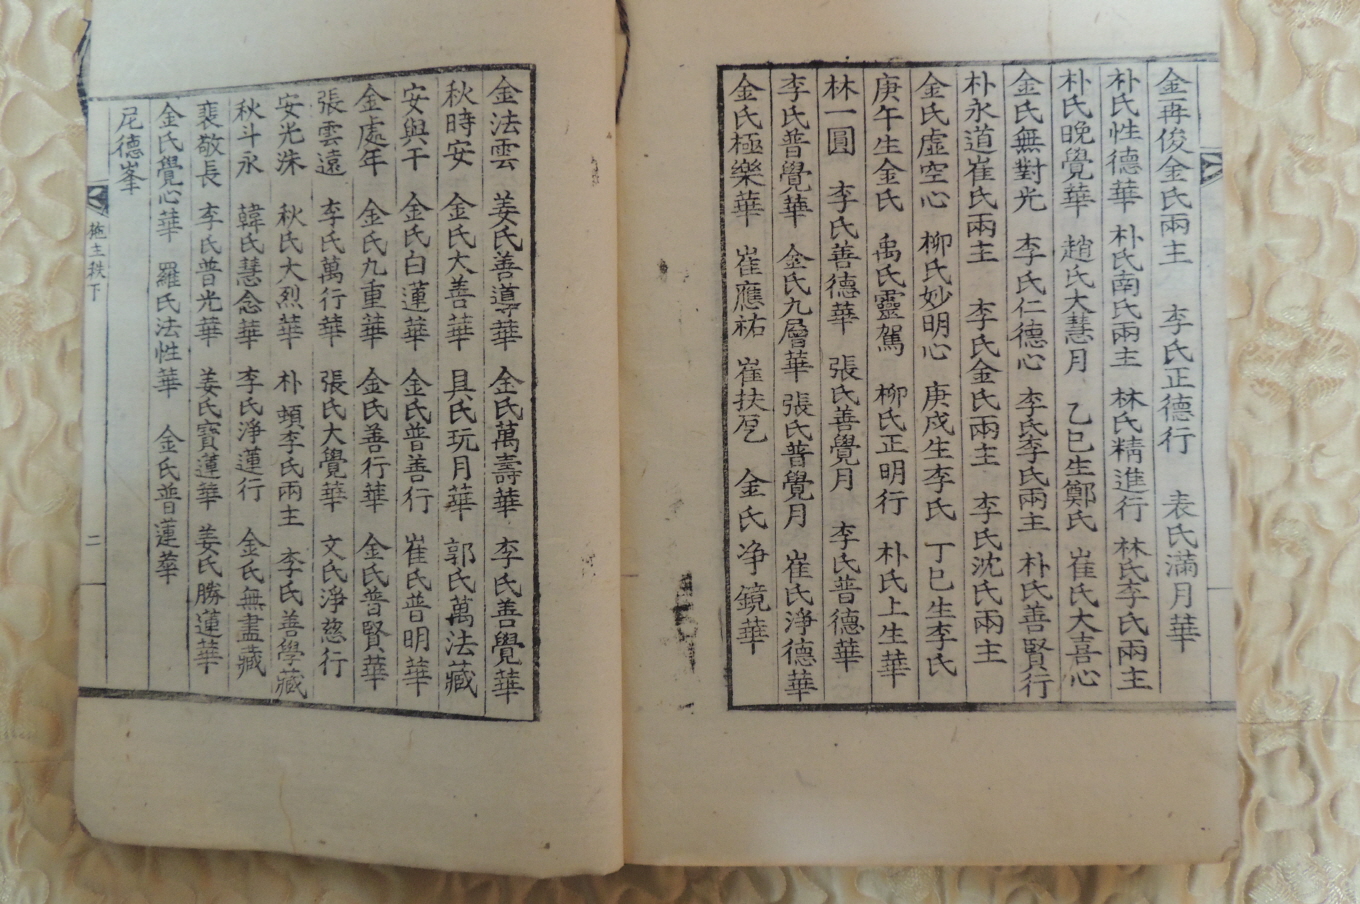 金冉俊金氏兩主 李氏正德行 表氏滿月華
朴氏性德華 朴氏南氏兩主 林氏精進行 林氏李氏兩主
朴氏晚覺華 趙氏大慧月 乙巳生鄭氏 崔氏大喜心
金氏無對光 李氏仁德心 李氏李氏兩主 朴氏善賢行
朴永道崔氏兩主 李氏金氏兩主 李氏沈氏兩主
金氏虛空心 柳氏妙明心 庚戌生李氏 丁巳生李氏
庚午生金氏 禹氏靈駕 柳氏正明行 朴氏上生華
林一圓 李氏善德華 張氏善覺月 李氏普德華
李氏普覺華 金氏九層華 張氏普覺月 崔氏淨德華
金氏極樂華 崔應祐 崔扶 金氏净鏡華
金法雲 姜氏善導華 金氏萬壽華 李氏善覺華
秋時安 金氏大善華 具氏玩月華 郭氏萬法藏
安與干 金氏白蓮華 金氏普善行 崔氏普明華
金處年 金氏九重華 金氏善行華 金氏普賢華
張雲遠 李氏萬行華 張氏大覺華 文氏淨慈行
安光洙 秋氏大烈華 朴 李氏兩主 李氏善學藏
秋斗永 韓氏慧念華 李氏淨蓮行 金氏無盡藏
裴敬長 李氏普光華 姜氏寶蓮華 姜氏勝蓮華
金氏覺心華 羅氏法性華 金氏普蓮華
尼德峯
施主秩下 二